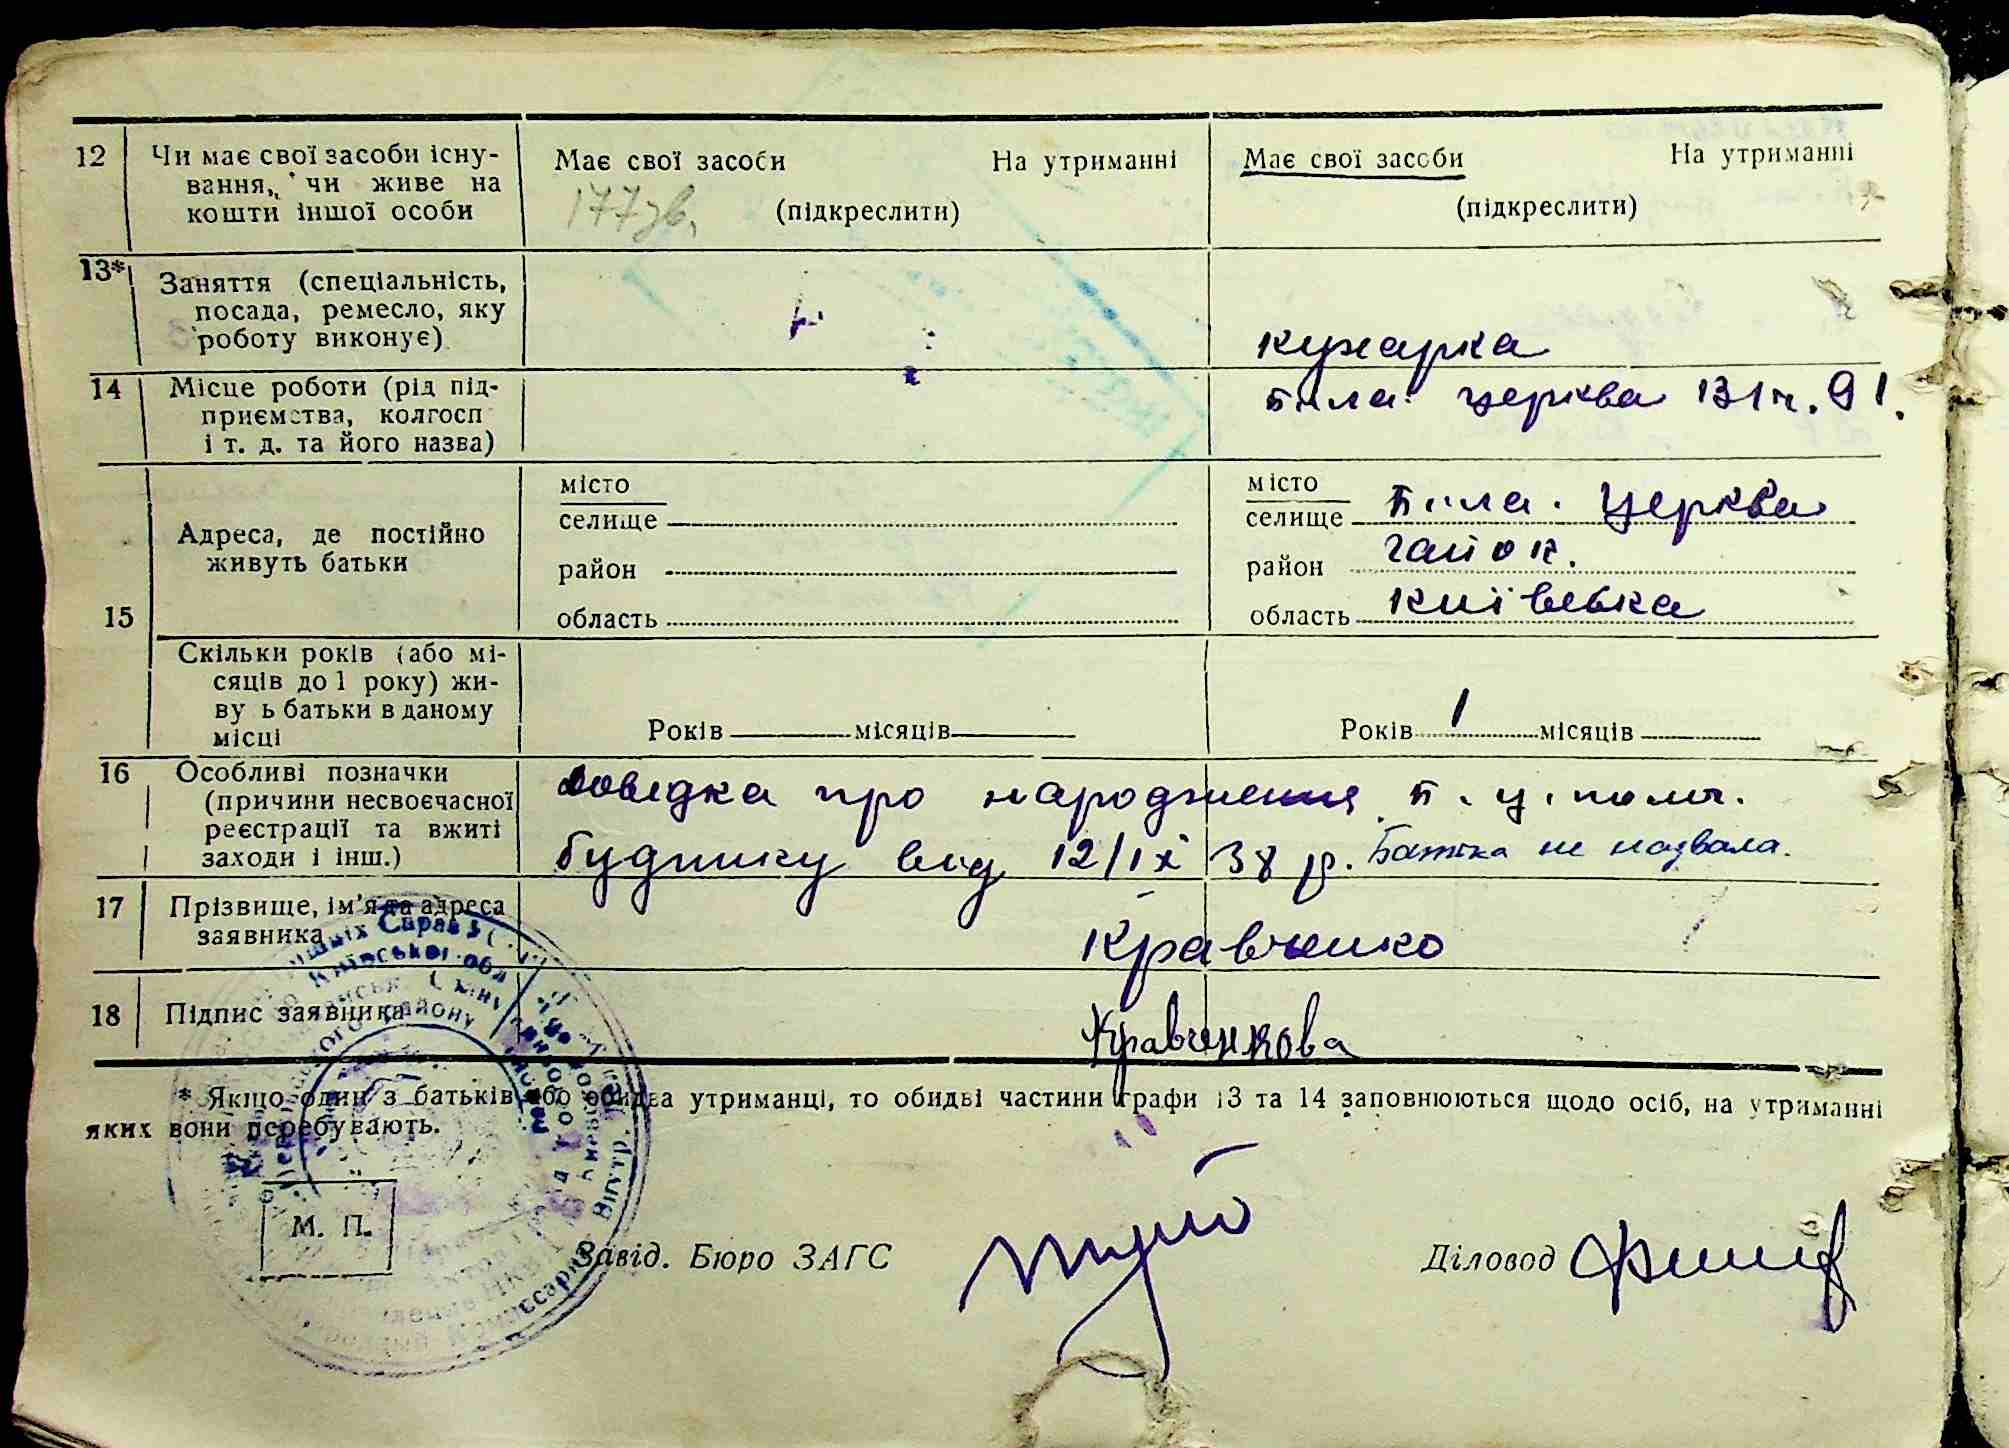 12 Чи має свої засоби існу- Має свої засоби На утриманні Має свої засоби На утриманні
вання, чи живе на
кошти іншої особи 177 зв. (підкреслити) (підкреслити)
13* Заняття (спеціальність,
посада, ремесло, яку
роботу виконує) кухарка
14 Місце роботи (рід під- Біла Церква 131 п. 91.
приємства, колгосп
і т. д. та його назва)
місто місто
селище селище Біла. Церква
Адреса, де постійно
живуть батьки район район
15 область область Київська
Скільки років (або мі-
сяців до 1 року) жи-
ву ь батьки в даному Років місяців Років 1 місяців
місці
16 Особливі позначки довідка про народження Б. Ц. полог.
(причини несвоєчасної
реєстрації та вжиті
заходи і інш.) будинку від 12/IX 38 р. Батька не назвала.
17 Прізвище, ім'я та адреса
заявника Кравченко
18 Підпис заявника Кравченкова
* Якщо один з батьків або обидва утриманці, то обидві частини графи 13 та 14 заповнюються щодо осіб, на утриманні
яких вони перебувають.
М. П.
Завід. Бюро ЗАГС Діловод
Справ
Київської обл
району